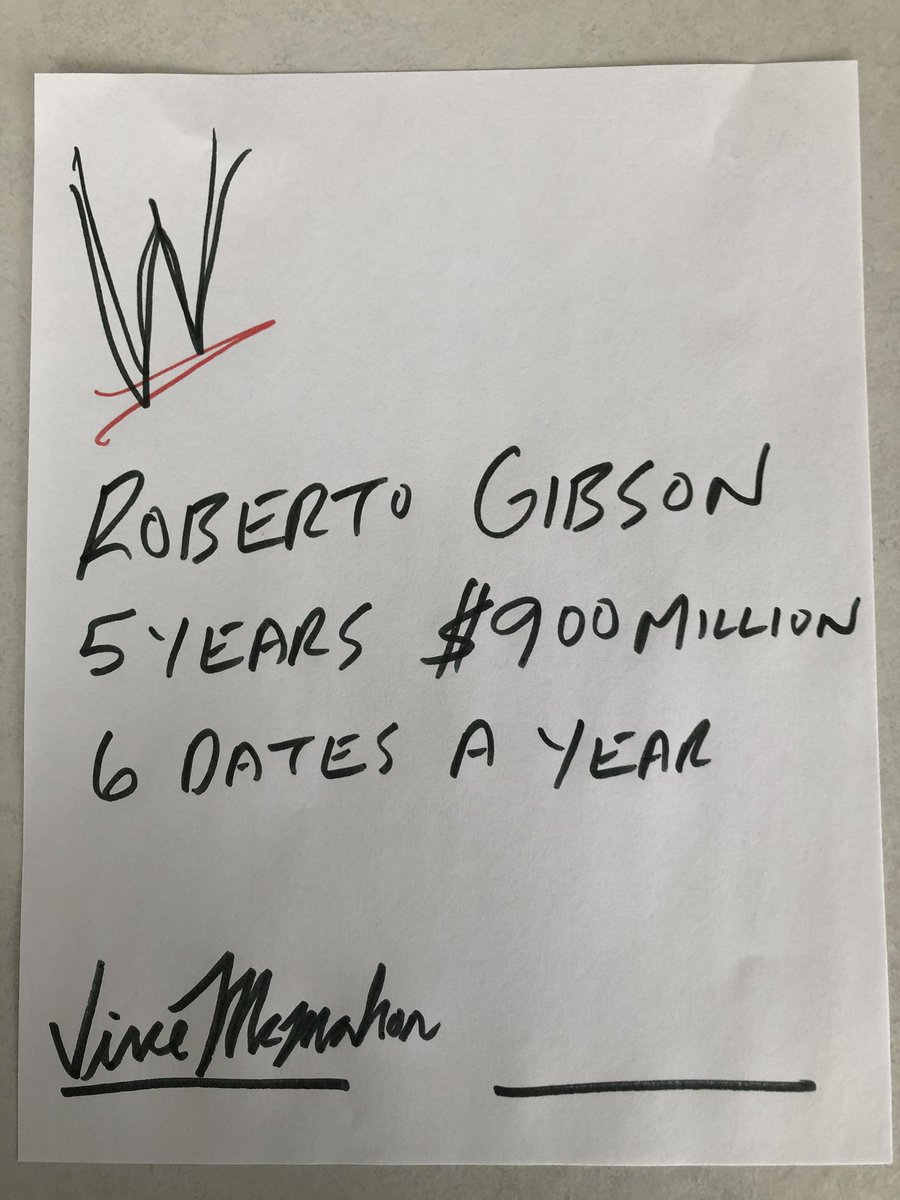 W
ROBERTO GIBSON
5 YEARS $900 MILLION
6 DATES A YEAR
Vince McMahon